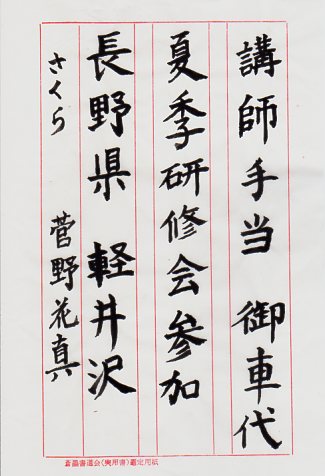 講師手当 御車代
夏季研修会参加
長野県 軽井沢
さくら 菅野花真
蒼墨書道会(実用書)鑑定用紙